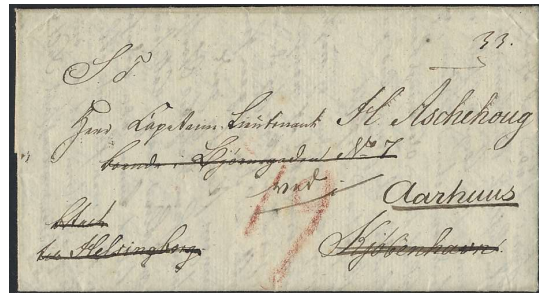 33.
S. T.
Herr Capitain-Lieutenant H. Aschehoug
boende i Bjørnegaden No 7
ved
Aarhuus
Kjøbenhavn.
til Helsingborg